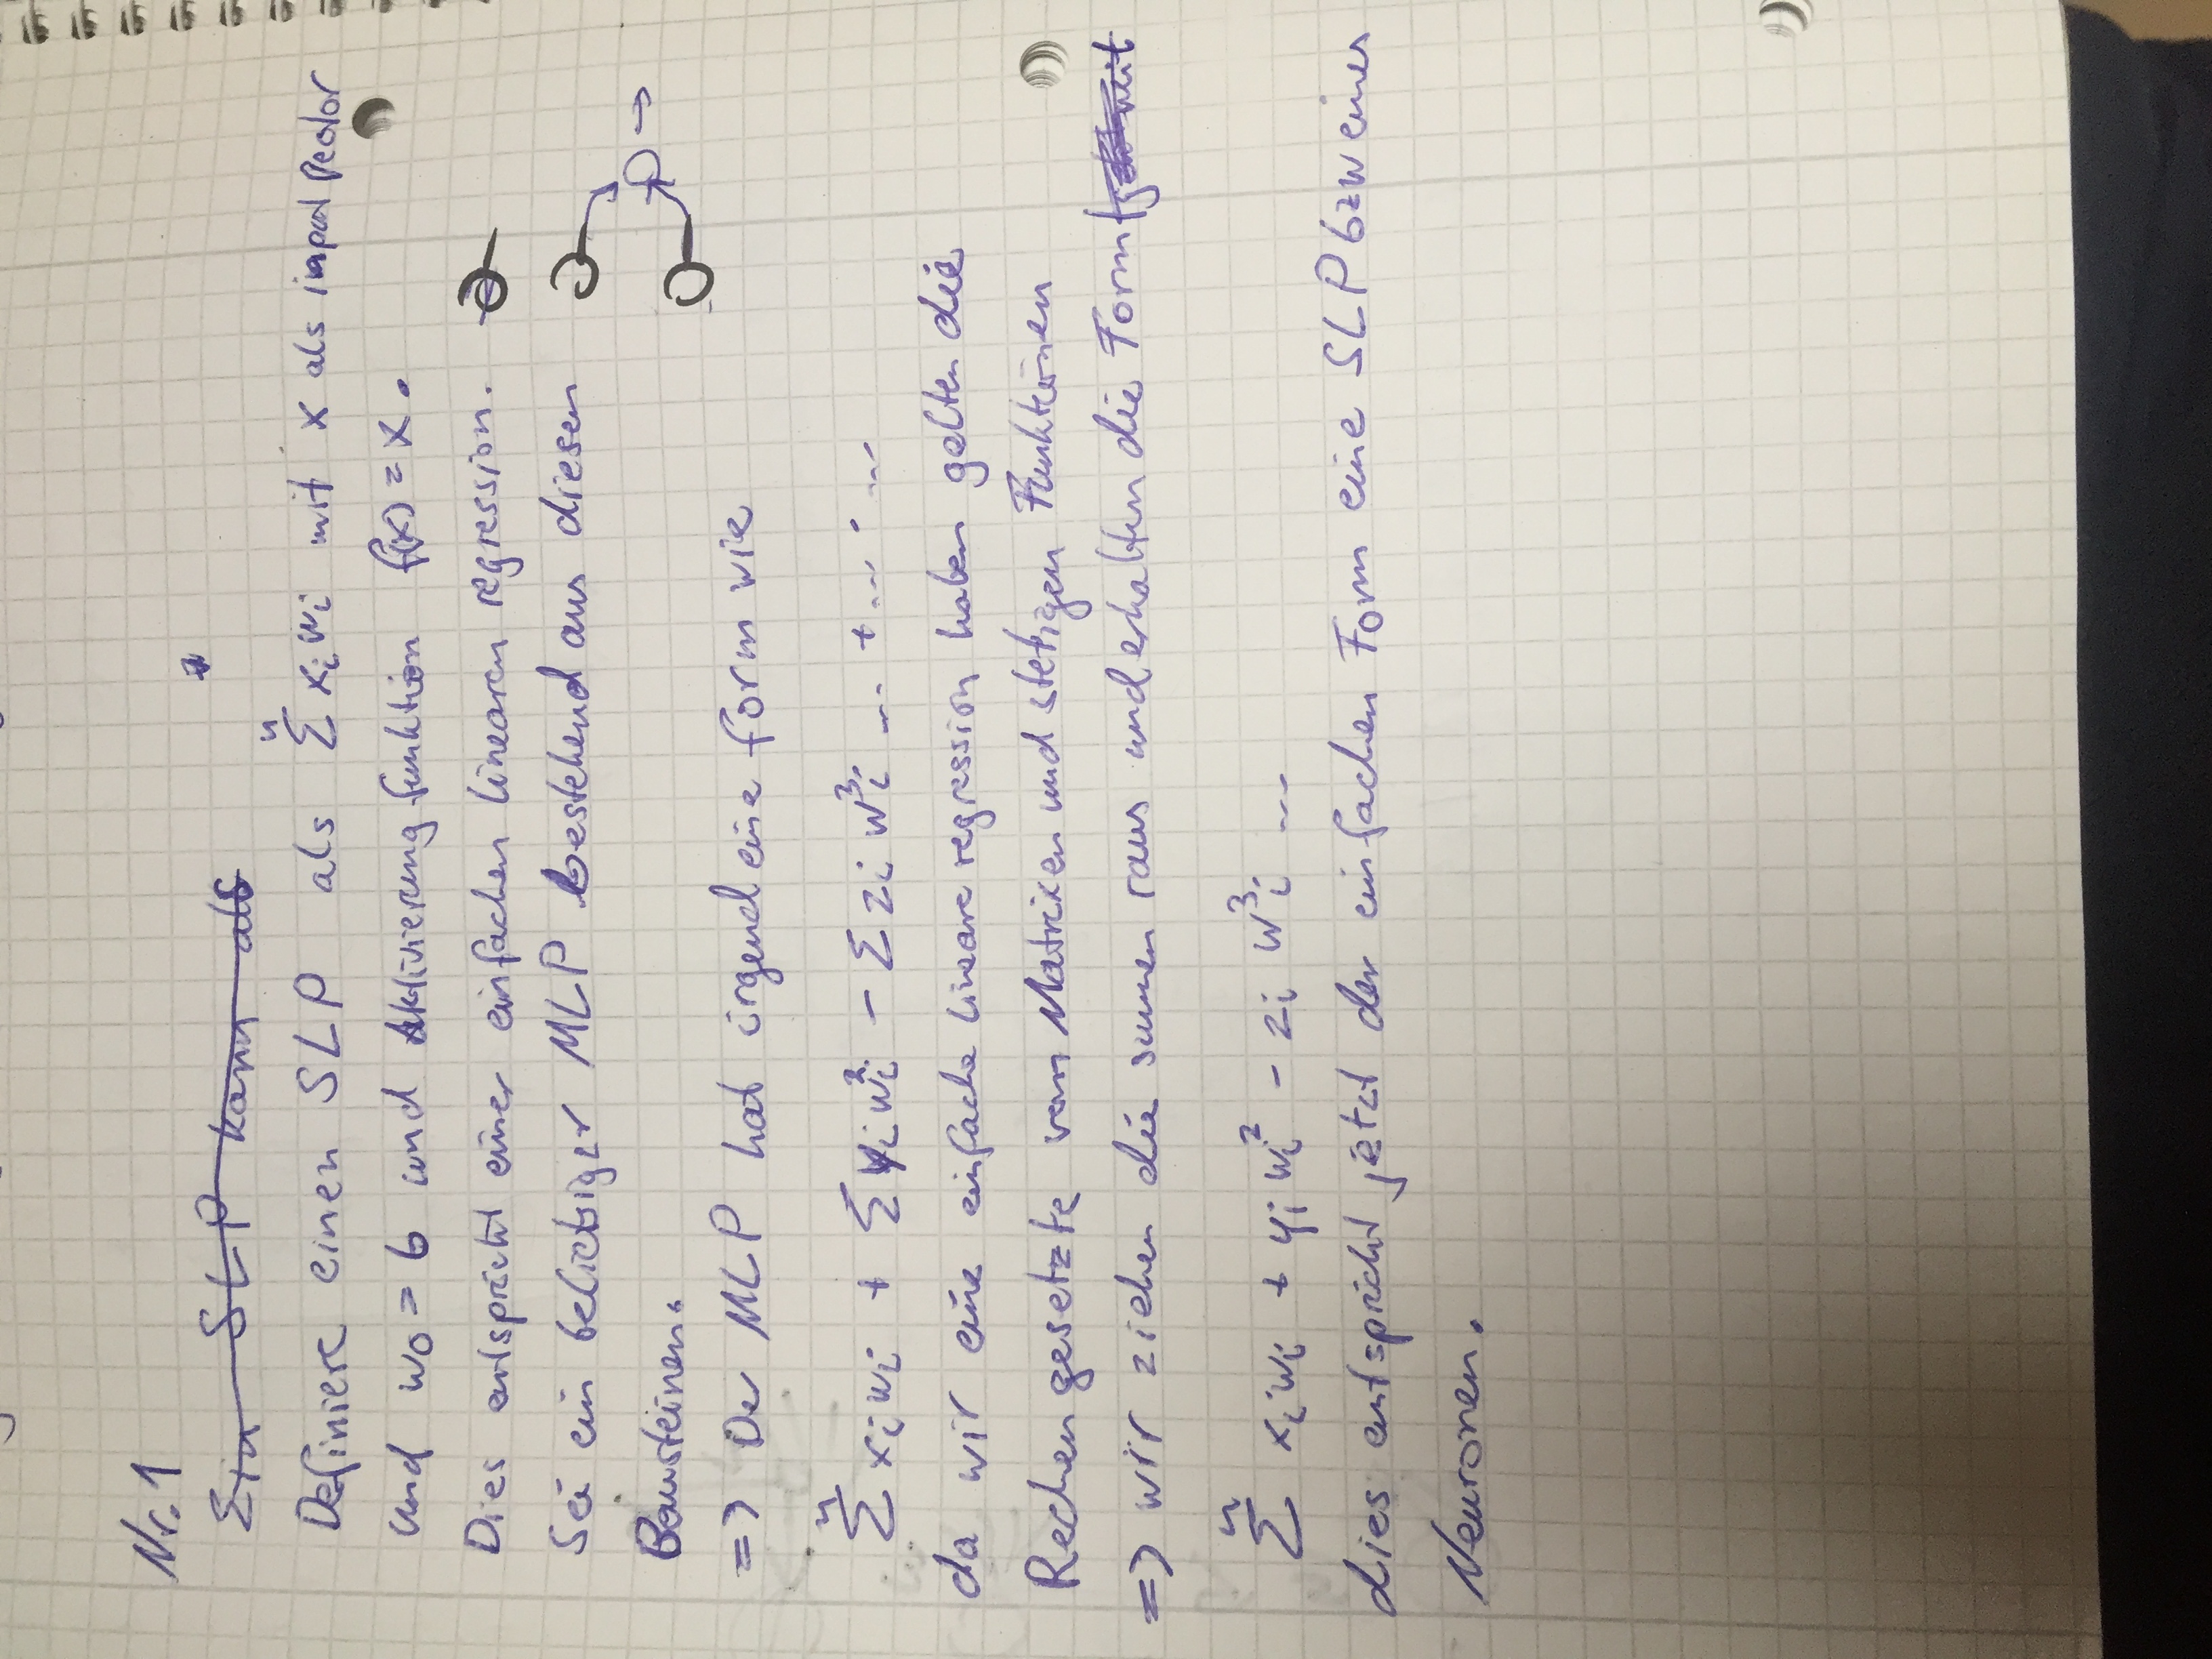 Nr. 1
Ein SLP kann als
Definiere einen SLP als Σⁿ xᵢwᵢ mit x als input Vector
und w₀ = b und Aktivierung funktion f(x) = x.
Dies entspricht einer einfachen linearen regression.
Sei ein beliebiger MLP bestehend aus diesen
Bausteinen.
=> Der MLP hat irgendeine form wie
Σⁿ xᵢwᵢ + Σ yᵢwᵢ² - Σ zᵢ w³ᵢ ... + ... · ...
da wir eine einfache lineare regression haben gelten die
Rechengesetzte von Matrixen und stetigen Funktionen
=> wir ziehen die summen raus und erhalten die Form
Σⁿ xᵢwᵢ + yᵢ wᵢ² - zᵢ w³ᵢ ...
dies entspricht jetzt der einfachen Form eine SLP bzw eines
Neuronen.